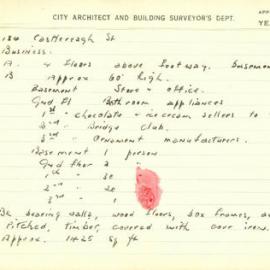 CITY ARCHITECT AND BUILDING SURVEYOR'S DEPT.
184 Castlereagh St
Business.
A. 4 floors above footway. Basemen
B Approx 60' high.
Basement Store + office.
Gnd Fl Bathroom appliances
1st " chocolate + icecream sellers to
2nd " Bridge Club.
3rd " Ornament manufacturers.
Basement 1 person.
Gnd floor 2 "
1st " 30
2nd " 20
3rd " 1
bearing walls, wood floors, box frames,
Pitched, timber, covered with corr iron.
Approx. 1425 sq ft